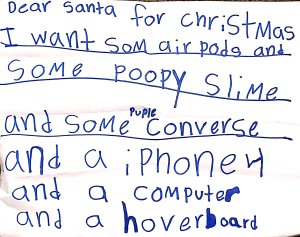 Dear Santa for christmas
I want som air pods and
some poopy slime
puple
and some converse
and a iphone 11
and a computer
and a hoverboard